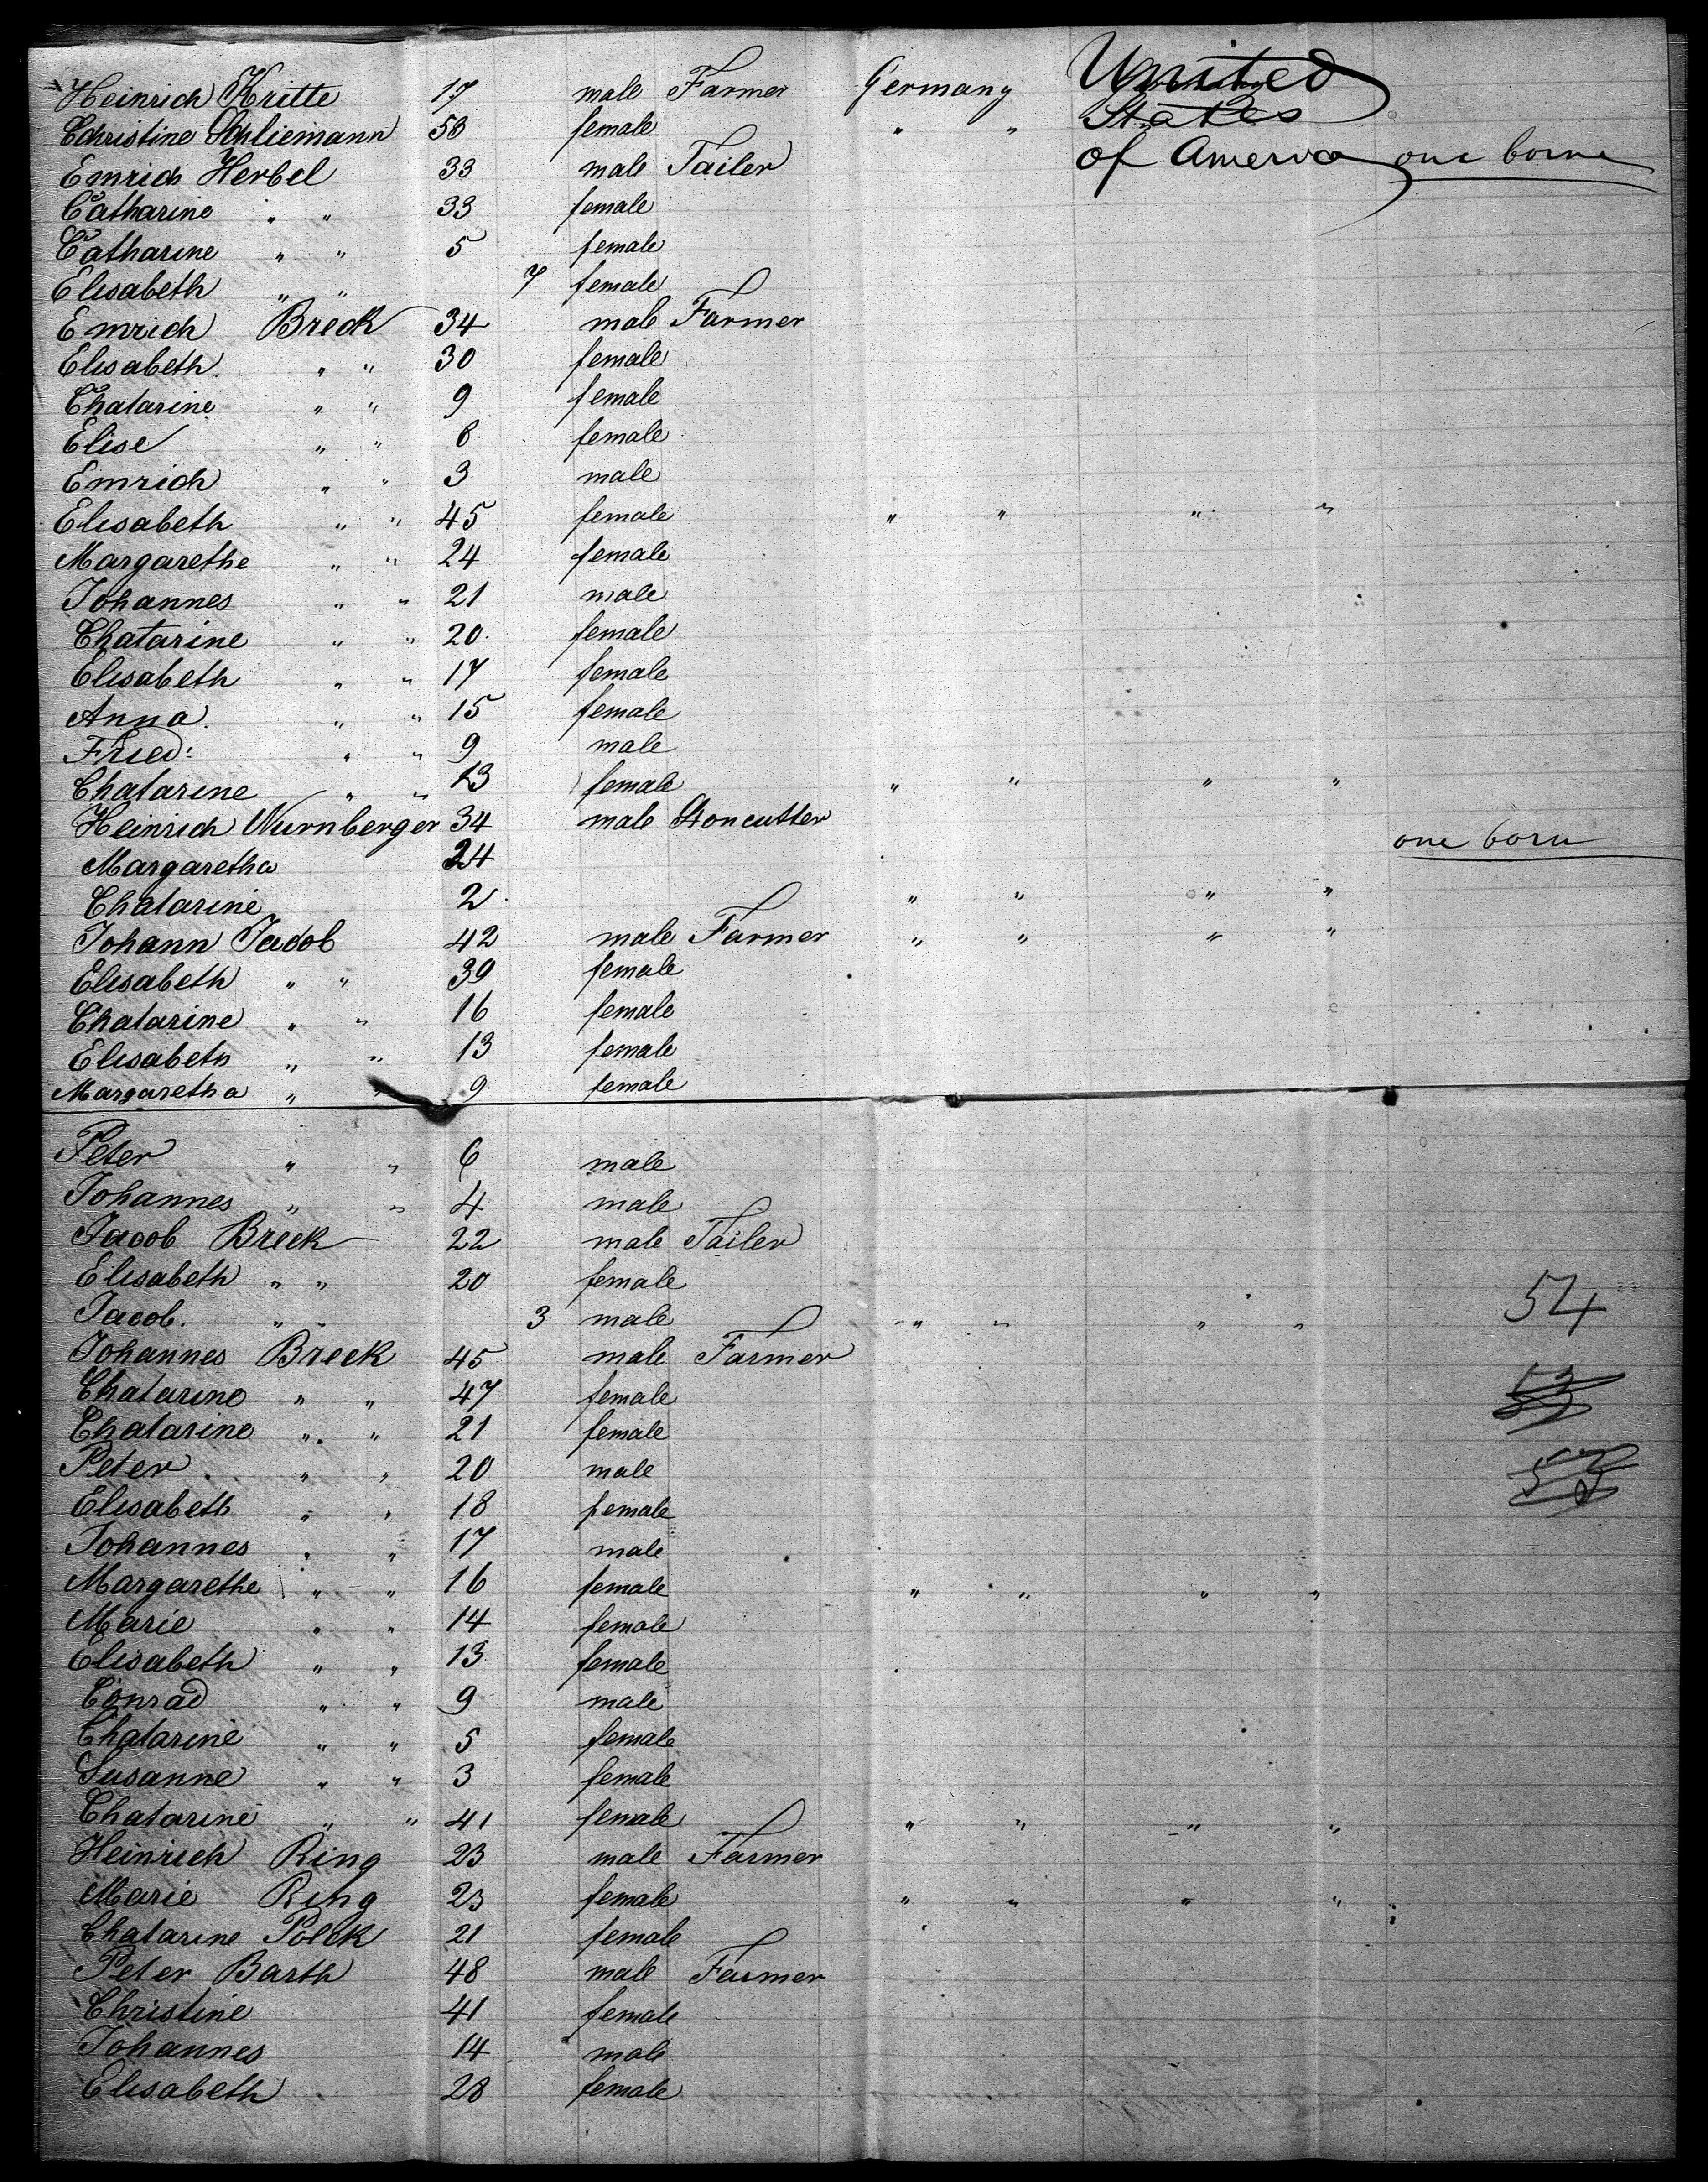 Heinrich Kritte 17 male Farmer Germany United
Christine Schliemann 58 female " " States
Emrich Herbel 33 male Tailer of America one borne
Catharine " " 33 female
Catharine " " 5 female
Elisabeth " " 7 female
Emrich Breck 34 male Farmer
Elisabeth " " 30 female
Chatarine " " 9 female
Elise " " 6 female
Emrich " " 3 male
Elisabeth " " 45 female " " " "
Margarethe " " 24 female
Johannes " " 21 male
Chatarine " " 20 female
Elisabeth " " 17 female
Anna " " 15 female
Fried: " " 9 male
Chatarine " " 13 female " " " "
Heinrich Nurnberger 34 male Stoncutter one born
Margaretha 24
Chatarine 2 " " " "
Johann Jacob 42 male Farmer " " " "
Elisabeth " " 39 female
Chatarine " " 16 female
Elisabeth " " 13 female
Margaretha " " 9 female
Peter " " 6 male
Johannes " " 4 male
Jacob Breck 22 male Tailer
Elisabeth " " 20 female
Jacob " " 3 male " " " " 54
Johannes Breck 45 male Farmer
Chatarine " " 47 female 53
Chatarine " " 21 female
Peter " " 20 male 53
Elisabeth " " 18 female
Johannes " " 17 male
Margarethe " " 16 female " " " "
Marie " " 14 female
Elisabeth " " 13 female
Conrad " " 9 male
Chatarine " " 5 female
Susanne " " 3 female
Chatarine " " 41 female " " " "
Heinrich Ring 23 male Farmer
Marie Ring 23 female " " " "
Chatarine Polck 21 female
Peter Barth 48 male Farmer
Christine 41 female
Johannes 14 male
Elisabeth 28 female